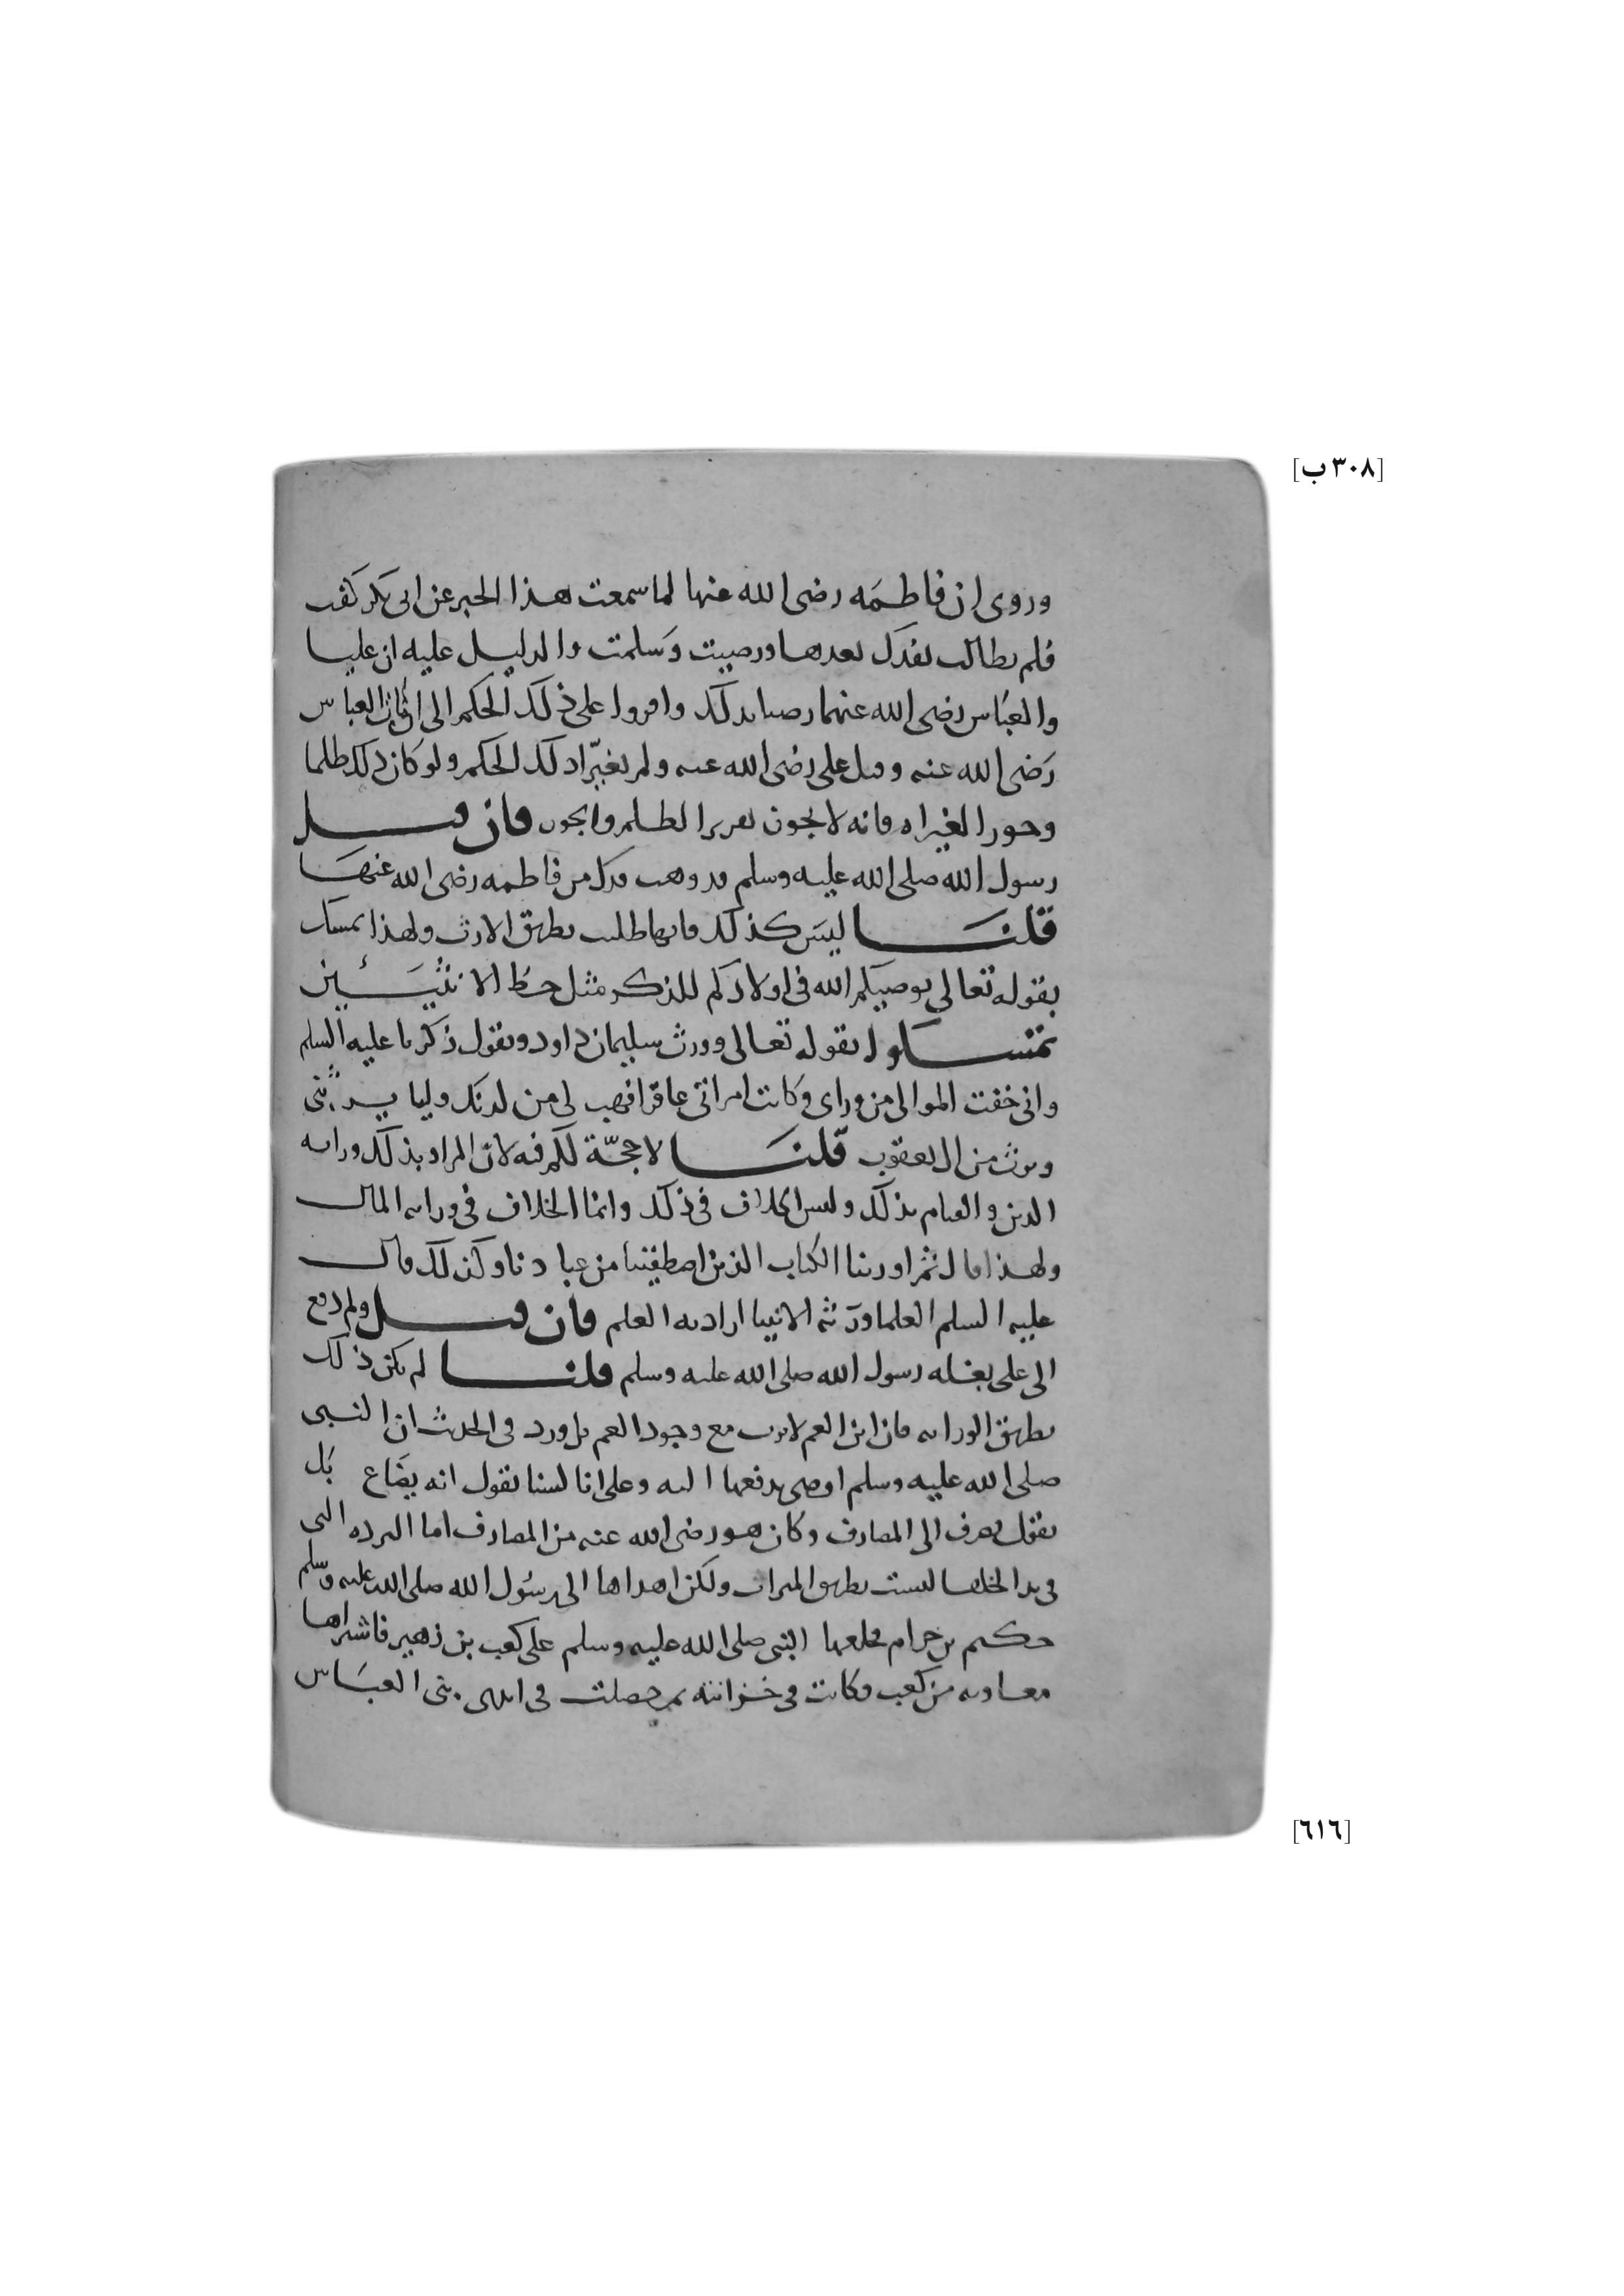 [٣٠٨ ب]
وروى ان فاطمه رضى الله عنها لما سمعت هذا الخبر عن ابى بكر كفت
فلم تطالب بفدك بعدها ورضيت وسلمت والدليل عليه ان عليا
والعباس رضى الله عنهما رضيا بذلك وامروا على ذلك الحكم الى ان العباس
رضى الله عنه وقيل على رضى الله عنه ولم يغيرا ذلك الحكم ولو كان ذلك ظلما
وجورا لغيراه فانه لا يجوز تقرير الظلم والجور فان قيل
رسول الله صلى الله عليه وسلم قد وهب فدك من فاطمه رضى الله عنها
قلنا ليس كذلك فانها طلبت بطريق الارث ولهذا تمسك
بقوله تعالى يوصيكم الله فى اولادكم للذكر مثل حظ الانثيين
تمسكوا بقوله تعالى وورث سليمان داود وبقول زكريا عليه السلم
وانى خفت الموالى من وراى وكانت امراتى عاقرا فهب لى من لدنك وليا يرثنى
ويرث من ال يعقوب قلنا لا حجة لكم فيه لان المراد بذلك وراثه
الدين والقيام بذلك وليس الخلاف فى ذلك وانما الخلاف فى وراثه المال
ولهذا قال ثم اورثنا الكتاب الذين اصطفينا من عبادنا وكذلك قال
عليه السلم العلما ورثه الانبيا اراد به العلم فان قيل ولم دفع
الى على بغله رسول الله صلى الله عليه وسلم قلنا لم يكن ذلك
بطريق الوراثه فان ابن العم لا يرث مع وجود العم بل ورد فى الحديث ان النبى
صلى الله عليه وسلم اوصى بدفعها اليه وعلى انا لسنا نقول انه يضاع بل
نقول يصرف الى المصارف وكان هو رضى الله عنه من المصارف اما البرده التى
فى يد الخلفا ليست بطريق الميراث ولكن اهداها الى رسول الله صلى الله عليه وسلم
حكيم بن حرام فخلعها النبى صلى الله عليه وسلم على كعب بن زهير فاشتراها
معاويه من كعب فكانت فى خزانته ثم حصلت فى ايدى بنى العباس
[٦١٦]